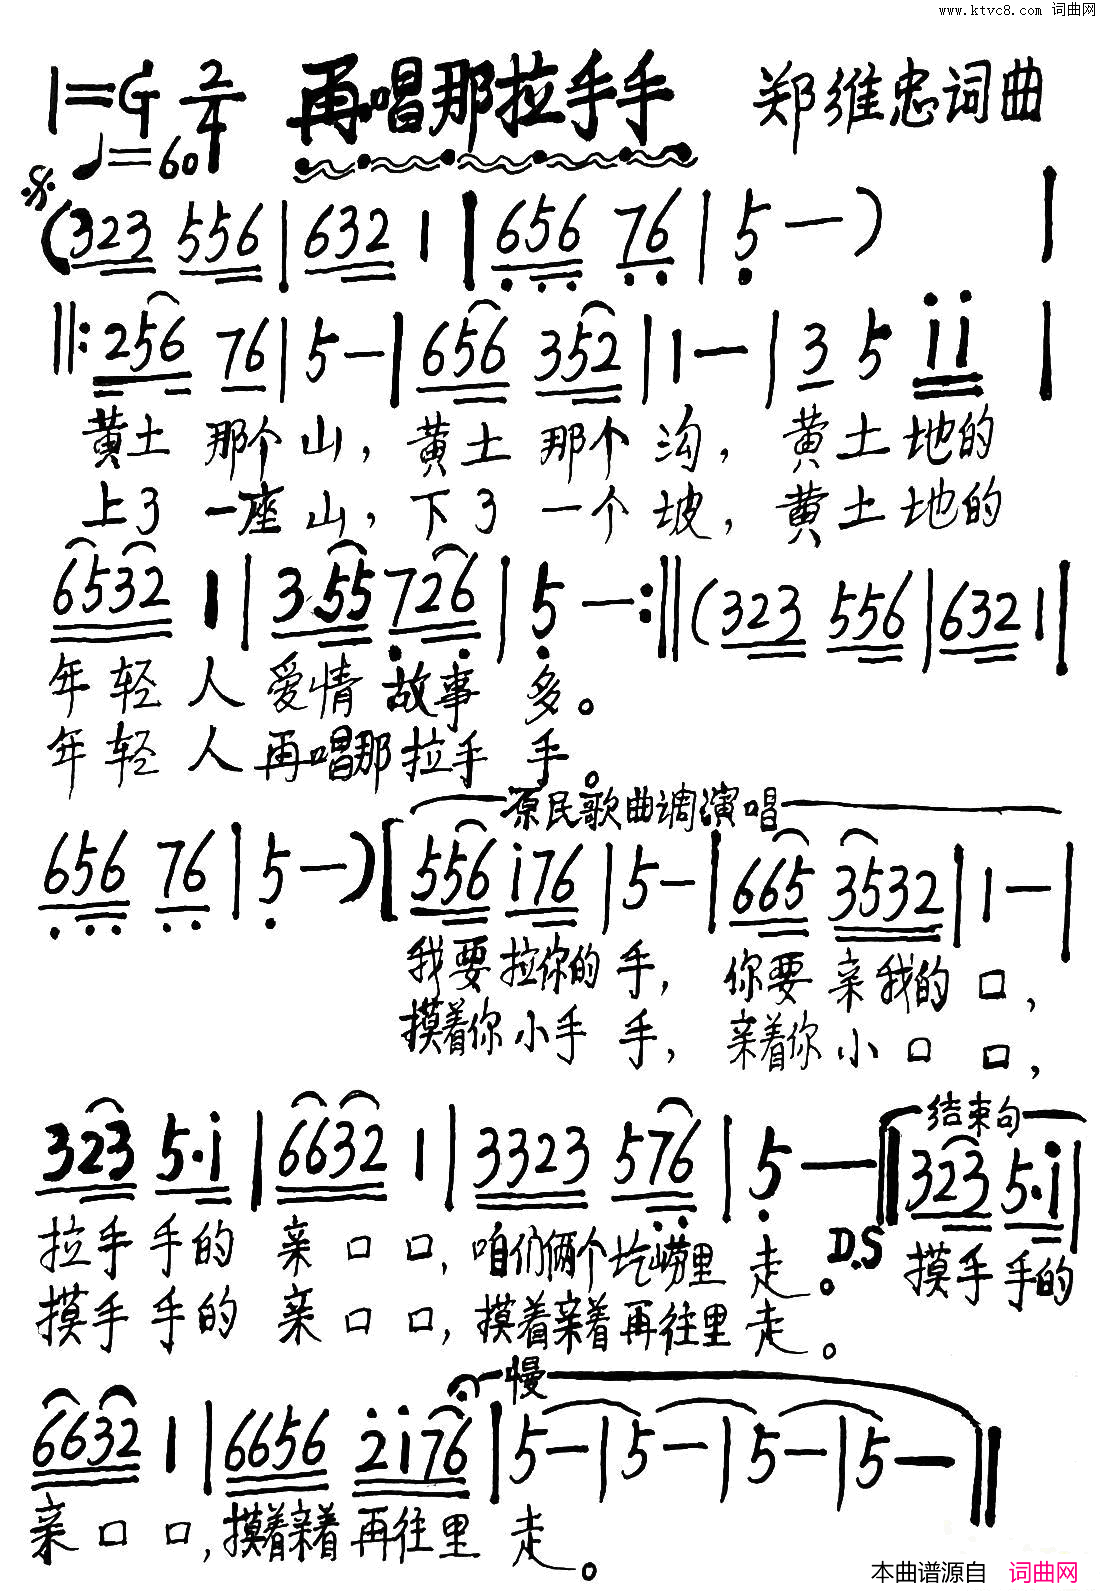 www.ktvc8.com 词曲网
1=G 2/4 再唱那拉手手 郑维忠词曲
♩=60
(323 556 | 632 1 | 656 76 | 5 — ) |
‖: 256 76 | 5 — | 656 352 | 1 — | 3 5 i i |
黄土 那个山, 黄土 那个 沟, 黄土地的
上了 一座山, 下了 一个坡, 黄土地的
6532 1 | 3·55 726 | 5 — :‖ (323 556 | 632 1 |
年轻人 爱情故事 多。
年轻人 再唱那拉手 手。
原民歌曲调演唱
656 76 | 5 — ) [ 556 i76 | 5 — | 665 3532 | 1 — |
我要拉你的 手, 你要亲我的口,
摸着你小手 手, 亲着你小口 口,
结束句
323 5·i | 6632 1 | 3323 576 | 5 — ‖ 323 5·i |
D.S
拉手手的 亲口口, 咱们俩个圪崂里 走。 摸手手的
摸手手的 亲口口, 摸着亲着再往里 走。
慢
6632 1 | 6656 2i76 | 5 — | 5 — | 5 — | 5 — ‖
亲口口, 摸着亲着 再往里 走。
本曲谱源自 词曲网